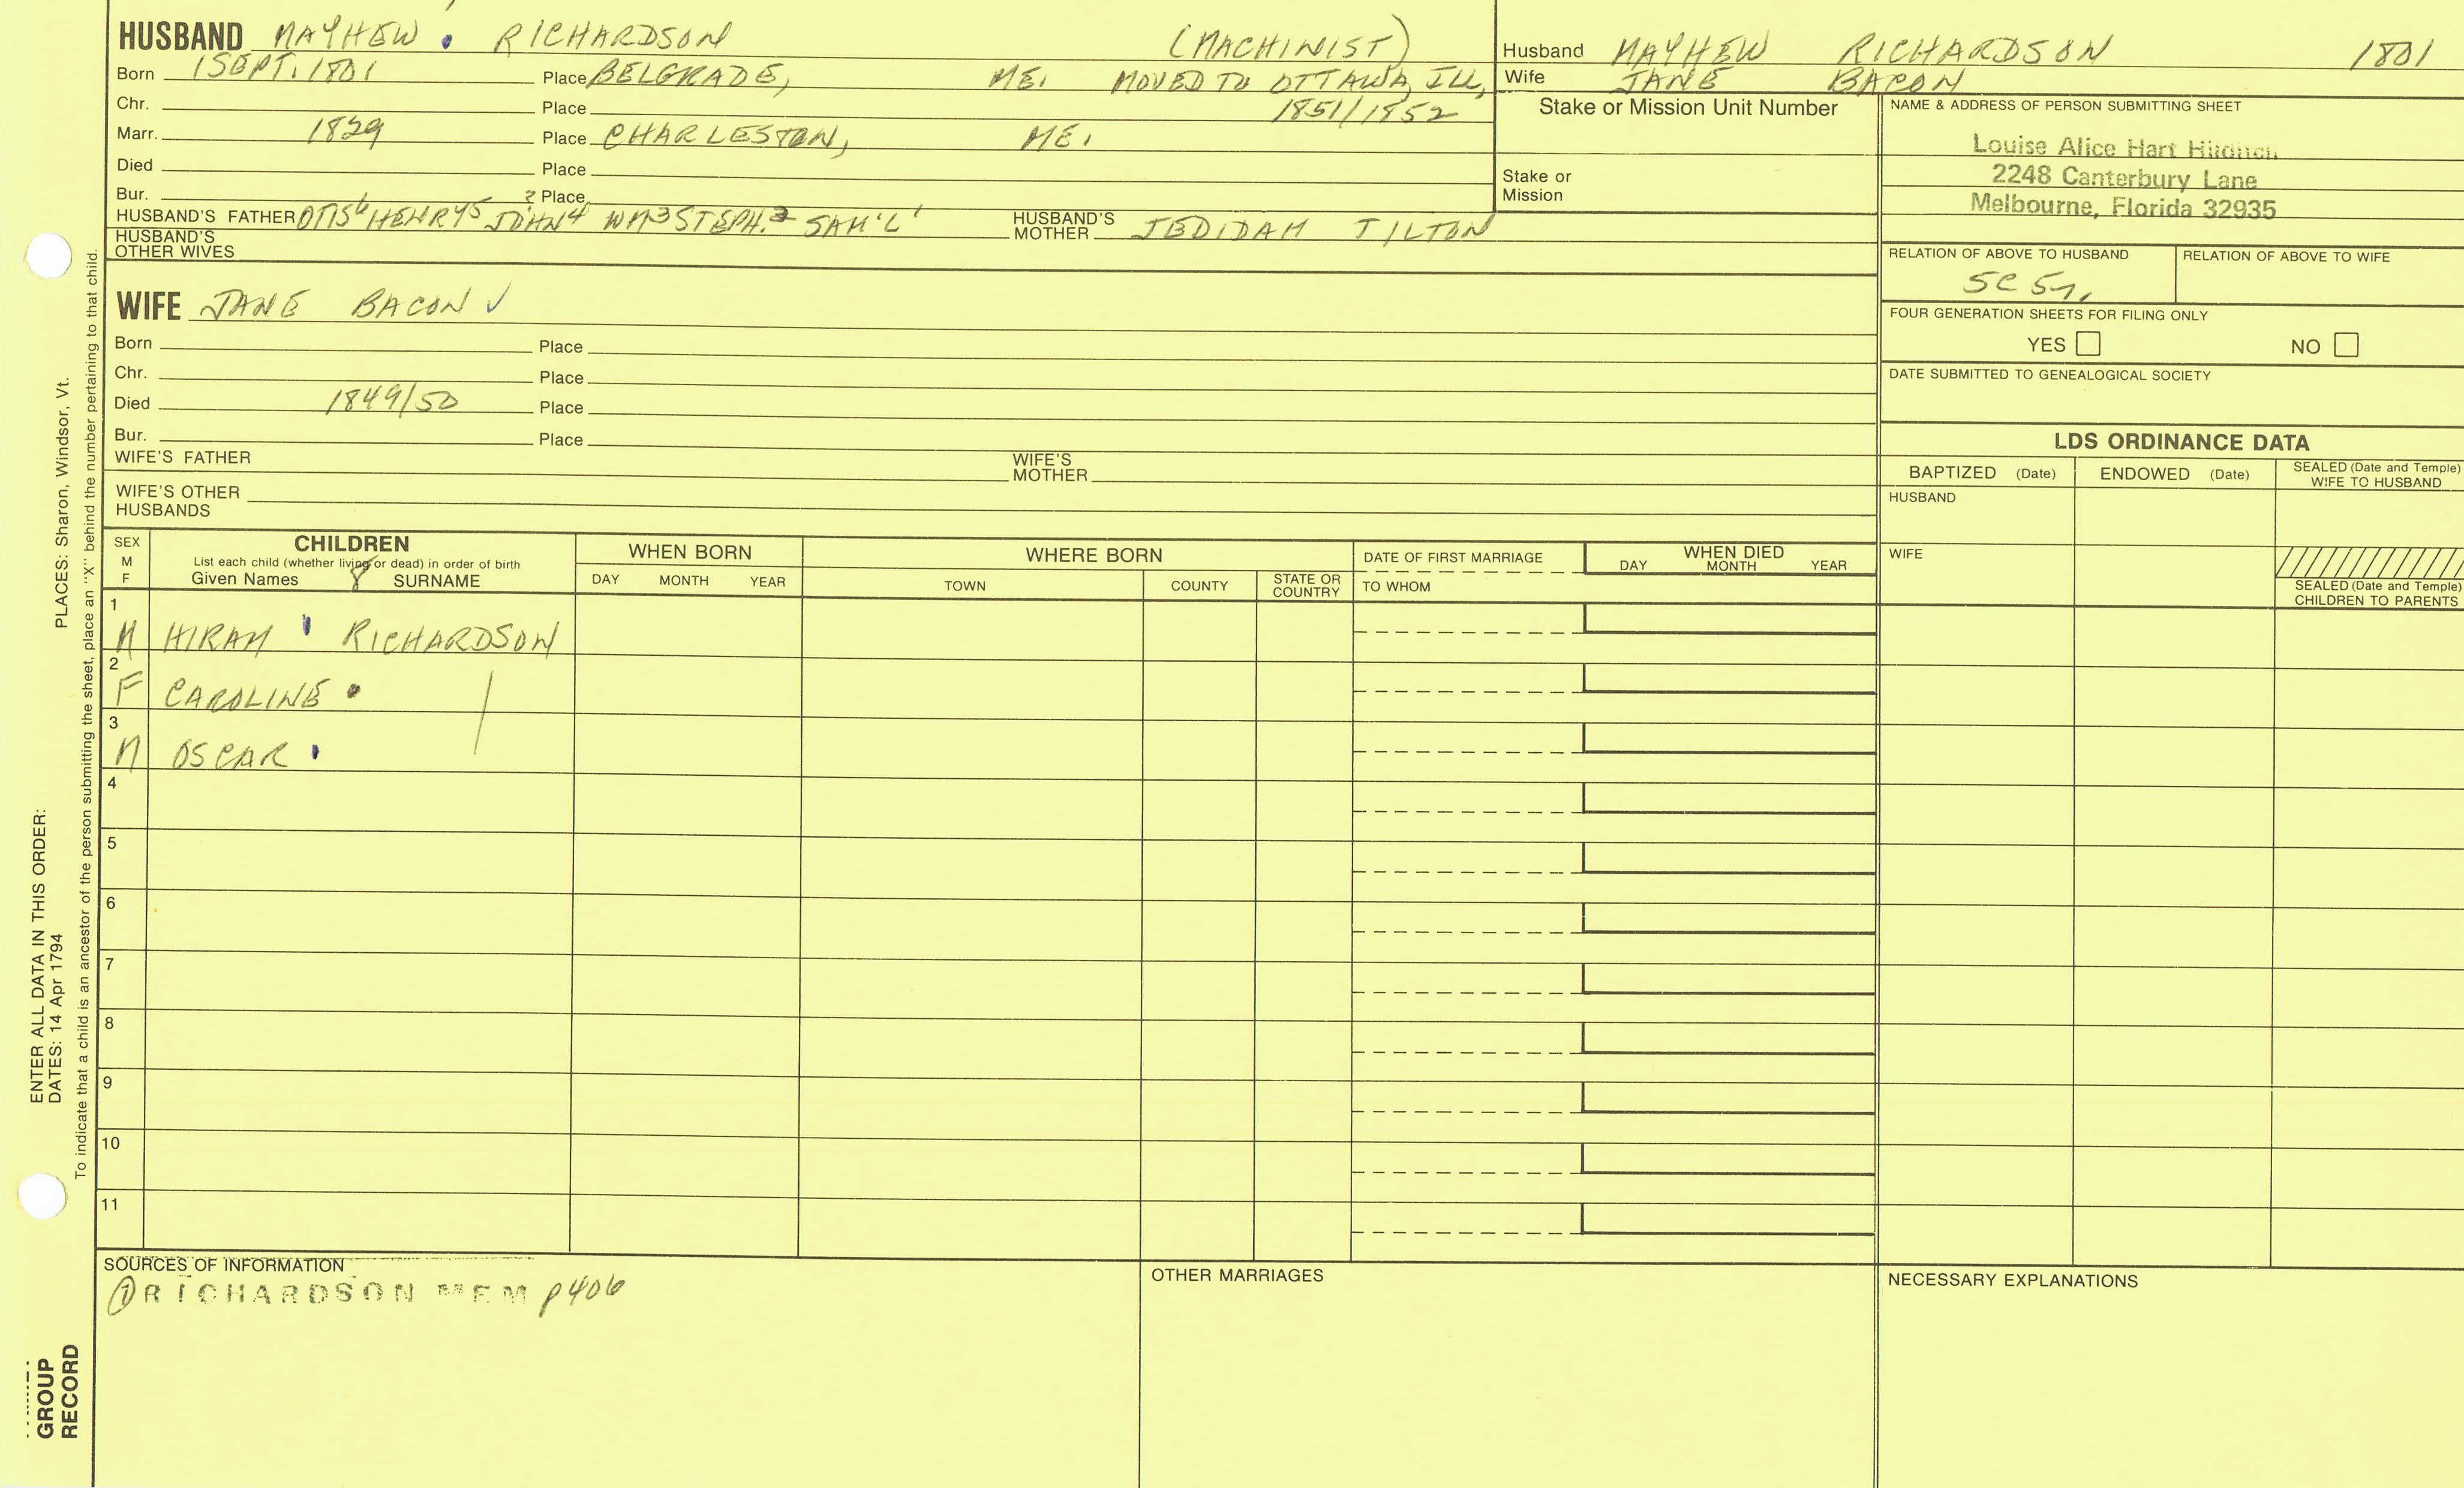 HUSBAND MAYHEW RICHARDSON (MACHINIST)
Born 1 SEPT. 1801 Place BELGRADE, ME. MOVED TO OTTAWA, ILL,
Chr. Place 1851/1852
Marr. 1829 Place CHARLESTON, ME.
Died Place
Bur. ? Place
HUSBAND'S FATHER OTIS6 HENRY5 JOHN4 WM3 STEPH.2 SAM'L1 HUSBAND'S MOTHER JEDIDAH TILTON
HUSBAND'S
OTHER WIVES
Husband MAYHEW RICHARDSON 1801
Wife JANE BACON
Stake or Mission Unit Number
Stake or
Mission
NAME & ADDRESS OF PERSON SUBMITTING SHEET
Louise Alice Hart
2248 Canterbury Lane
Melbourne, Florida 32935
RELATION OF ABOVE TO HUSBAND RELATION OF ABOVE TO WIFE
5C 5
FOUR GENERATION SHEETS FOR FILING ONLY
YES NO
DATE SUBMITTED TO GENEALOGICAL SOCIETY
WIFE JANE BACON ✓
Born Place
Chr. Place
Died 1849/50 Place
Bur. Place
WIFE'S FATHER WIFE'S MOTHER
WIFE'S OTHER
HUSBANDS
LDS ORDINANCE DATA
BAPTIZED (Date) ENDOWED (Date) SEALED (Date and Temple) WIFE TO HUSBAND
HUSBAND
WIFE
SEALED (Date and Temple)
CHILDREN TO PARENTS
SEX
M
F
CHILDREN
List each child (whether living or dead) in order of birth
Given Names SURNAME
WHEN BORN
DAY MONTH YEAR
WHERE BORN
TOWN COUNTY STATE OR COUNTRY
DATE OF FIRST MARRIAGE
TO WHOM
WHEN DIED
DAY MONTH YEAR
1
M HIRAM RICHARDSON
2
F CAROLINE
3
M OSCAR
4
5
6
7
8
9
10
11
SOURCES OF INFORMATION
① RICHARDSON MEM p406
OTHER MARRIAGES
NECESSARY EXPLANATIONS
ENTER ALL DATA IN THIS ORDER:
DATES: 14 Apr 1794 PLACES: Sharon, Windsor, Vt.
To indicate that a child is an ancestor of the person submitting the sheet, place an "X" behind the number pertaining to that child.
GROUP
RECORD